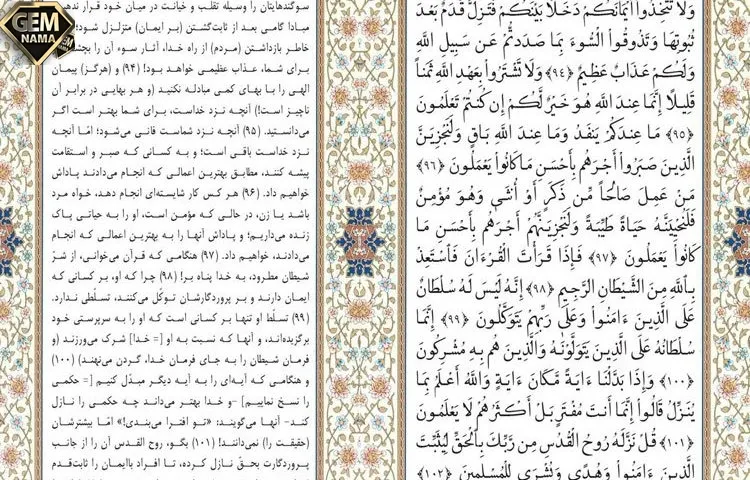 GEM
NAMA
وَلَا تَتَّخِذُوا أَيْمَانَكُمْ دَخَلًا بَيْنَكُمْ فَتَزِلَّ قَدَمٌ بَعْدَ
ثُبُوتِهَا وَتَذُوقُوا السُّوءَ بِمَا صَدَدتُّمْ عَن سَبِيلِ اللَّهِ
وَلَكُمْ عَذَابٌ عَظِيمٌ ﴿٩٤﴾ وَلَا تَشْتَرُوا بِعَهْدِ اللَّهِ ثَمَناً
قَلِيلًا إِنَّمَا عِندَ اللَّهِ هُوَ خَيْرٌ لَّكُمْ إِن كُنتُمْ تَعْلَمُونَ
﴿٩٥﴾ مَا عِندَكُمْ يَنفَدُ وَمَا عِندَ اللَّهِ بَاقٍ وَلَنَجْزِيَنَّ
الَّذِينَ صَبَرُوا أَجْرَهُم بِأَحْسَنِ مَا كَانُوا يَعْمَلُونَ ﴿٩٦﴾
مَنْ عَمِلَ صَالِحاً مِّن ذَكَرٍ أَوْ أُنثَى وَهُوَ مُؤْمِنٌ
فَلَنُحْيِيَنَّهُ حَيَاةً طَيِّبَةً وَلَنَجْزِيَنَّهُمْ أَجْرَهُم بِأَحْسَنِ مَا
كَانُوا يَعْمَلُونَ ﴿٩٧﴾ فَإِذَا قَرَأْتَ الْقُرْءَانَ فَاسْتَعِذْ
بِاللَّهِ مِنَ الشَّيْطَانِ الرَّجِيمِ ﴿٩٨﴾ إِنَّهُ لَيْسَ لَهُ سُلْطَانٌ
عَلَى الَّذِينَ ءَامَنُوا وَعَلَى رَبِّهِمْ يَتَوَكَّلُونَ ﴿٩٩﴾ إِنَّمَا
سُلْطَانُهُ عَلَى الَّذِينَ يَتَوَلَّوْنَهُ وَالَّذِينَ هُم بِهِ مُشْرِكُونَ
﴿١٠٠﴾ وَإِذَا بَدَّلْنَا ءَايَةً مَّكَانَ ءَايَةٍ وَاللَّهُ أَعْلَمُ بِمَا
يُنَزِّلُ قَالُوا إِنَّمَا أَنتَ مُفْتَرٍ بَلْ أَكْثَرُهُمْ لَا يَعْلَمُونَ
﴿١٠١﴾ قُلْ نَزَّلَهُ رُوحُ الْقُدُسِ مِن رَّبِّكَ بِالْحَقِّ لِيُثَبِّتَ
الَّذِينَ ءَامَنُوا وَهُدًى وَبُشْرَى لِلْمُسْلِمِينَ ﴿١٠٢﴾
سوگندهایتان را وسیله تقلب و خیانت در میان خود قرار ندهید،
مبادا گامی بعد از ثابت‌گشتن (بر ایمان) متزلزل شود؛
خاطر بازداشتن (مردم) از راه خدا، آثار سوء آن را
برای شما، عذاب عظیمی خواهد بود! (۹۴) و (هرگز) پیمان
الهی را با بهای کمی مبادله نکنید (و هر بهایی در برابر آن
ناچیز است!) آنچه نزد خداست، برای شما بهتر است اگر
می‌دانستید. (۹۵) آنچه نزد شماست فانی می‌شود؛ امّا آنچه
نزد خداست باقی است؛ و به کسانی که صبر و استقامت
پیشه کنند، مطابق بهترین اعمالی که انجام می‌دادند پاداش
خواهیم داد. (۹۶) هر کس کار شایسته‌ای انجام دهد، خواه مرد
باشد یا زن، در حالی که مؤمن است، او را به حیاتی پاک
زنده می‌داریم؛ و پاداش آنها را به بهترین اعمالی که انجام
می‌دادند، خواهیم داد. (۹۷) هنگامی که قرآن می‌خوانی، از شرّ
شیطان مطرود، به خدا پناه بر! (۹۸) چرا که او، بر کسانی که
ایمان دارند و بر پروردگارشان توکّل می‌کنند، تسلّطی ندارد.
(۹۹) تسلّط او تنها بر کسانی است که او را به سرپرستی خود
برگزیده‌اند، و آنها که نسبت به او [= خدا] شرک می‌ورزند (و
فرمان شیطان را به جای فرمان خدا، گردن می‌نهند) (۱۰۰)
و هنگامی که آیه‌ای را به آیه دیگر مبدّل کنیم [= حکمی
را نسخ نماییم] -و خدا بهتر می‌داند چه حکمی را نازل
کند- آنها می‌گویند: «تو افترا می‌بندی!» امّا بیشترشان
(حقیقت را) نمی‌دانند! (۱۰۱) بگو، روح القدس آن را از جانب
پروردگارت بحقّ نازل کرده، تا افراد باایمان را ثابت‌قدم